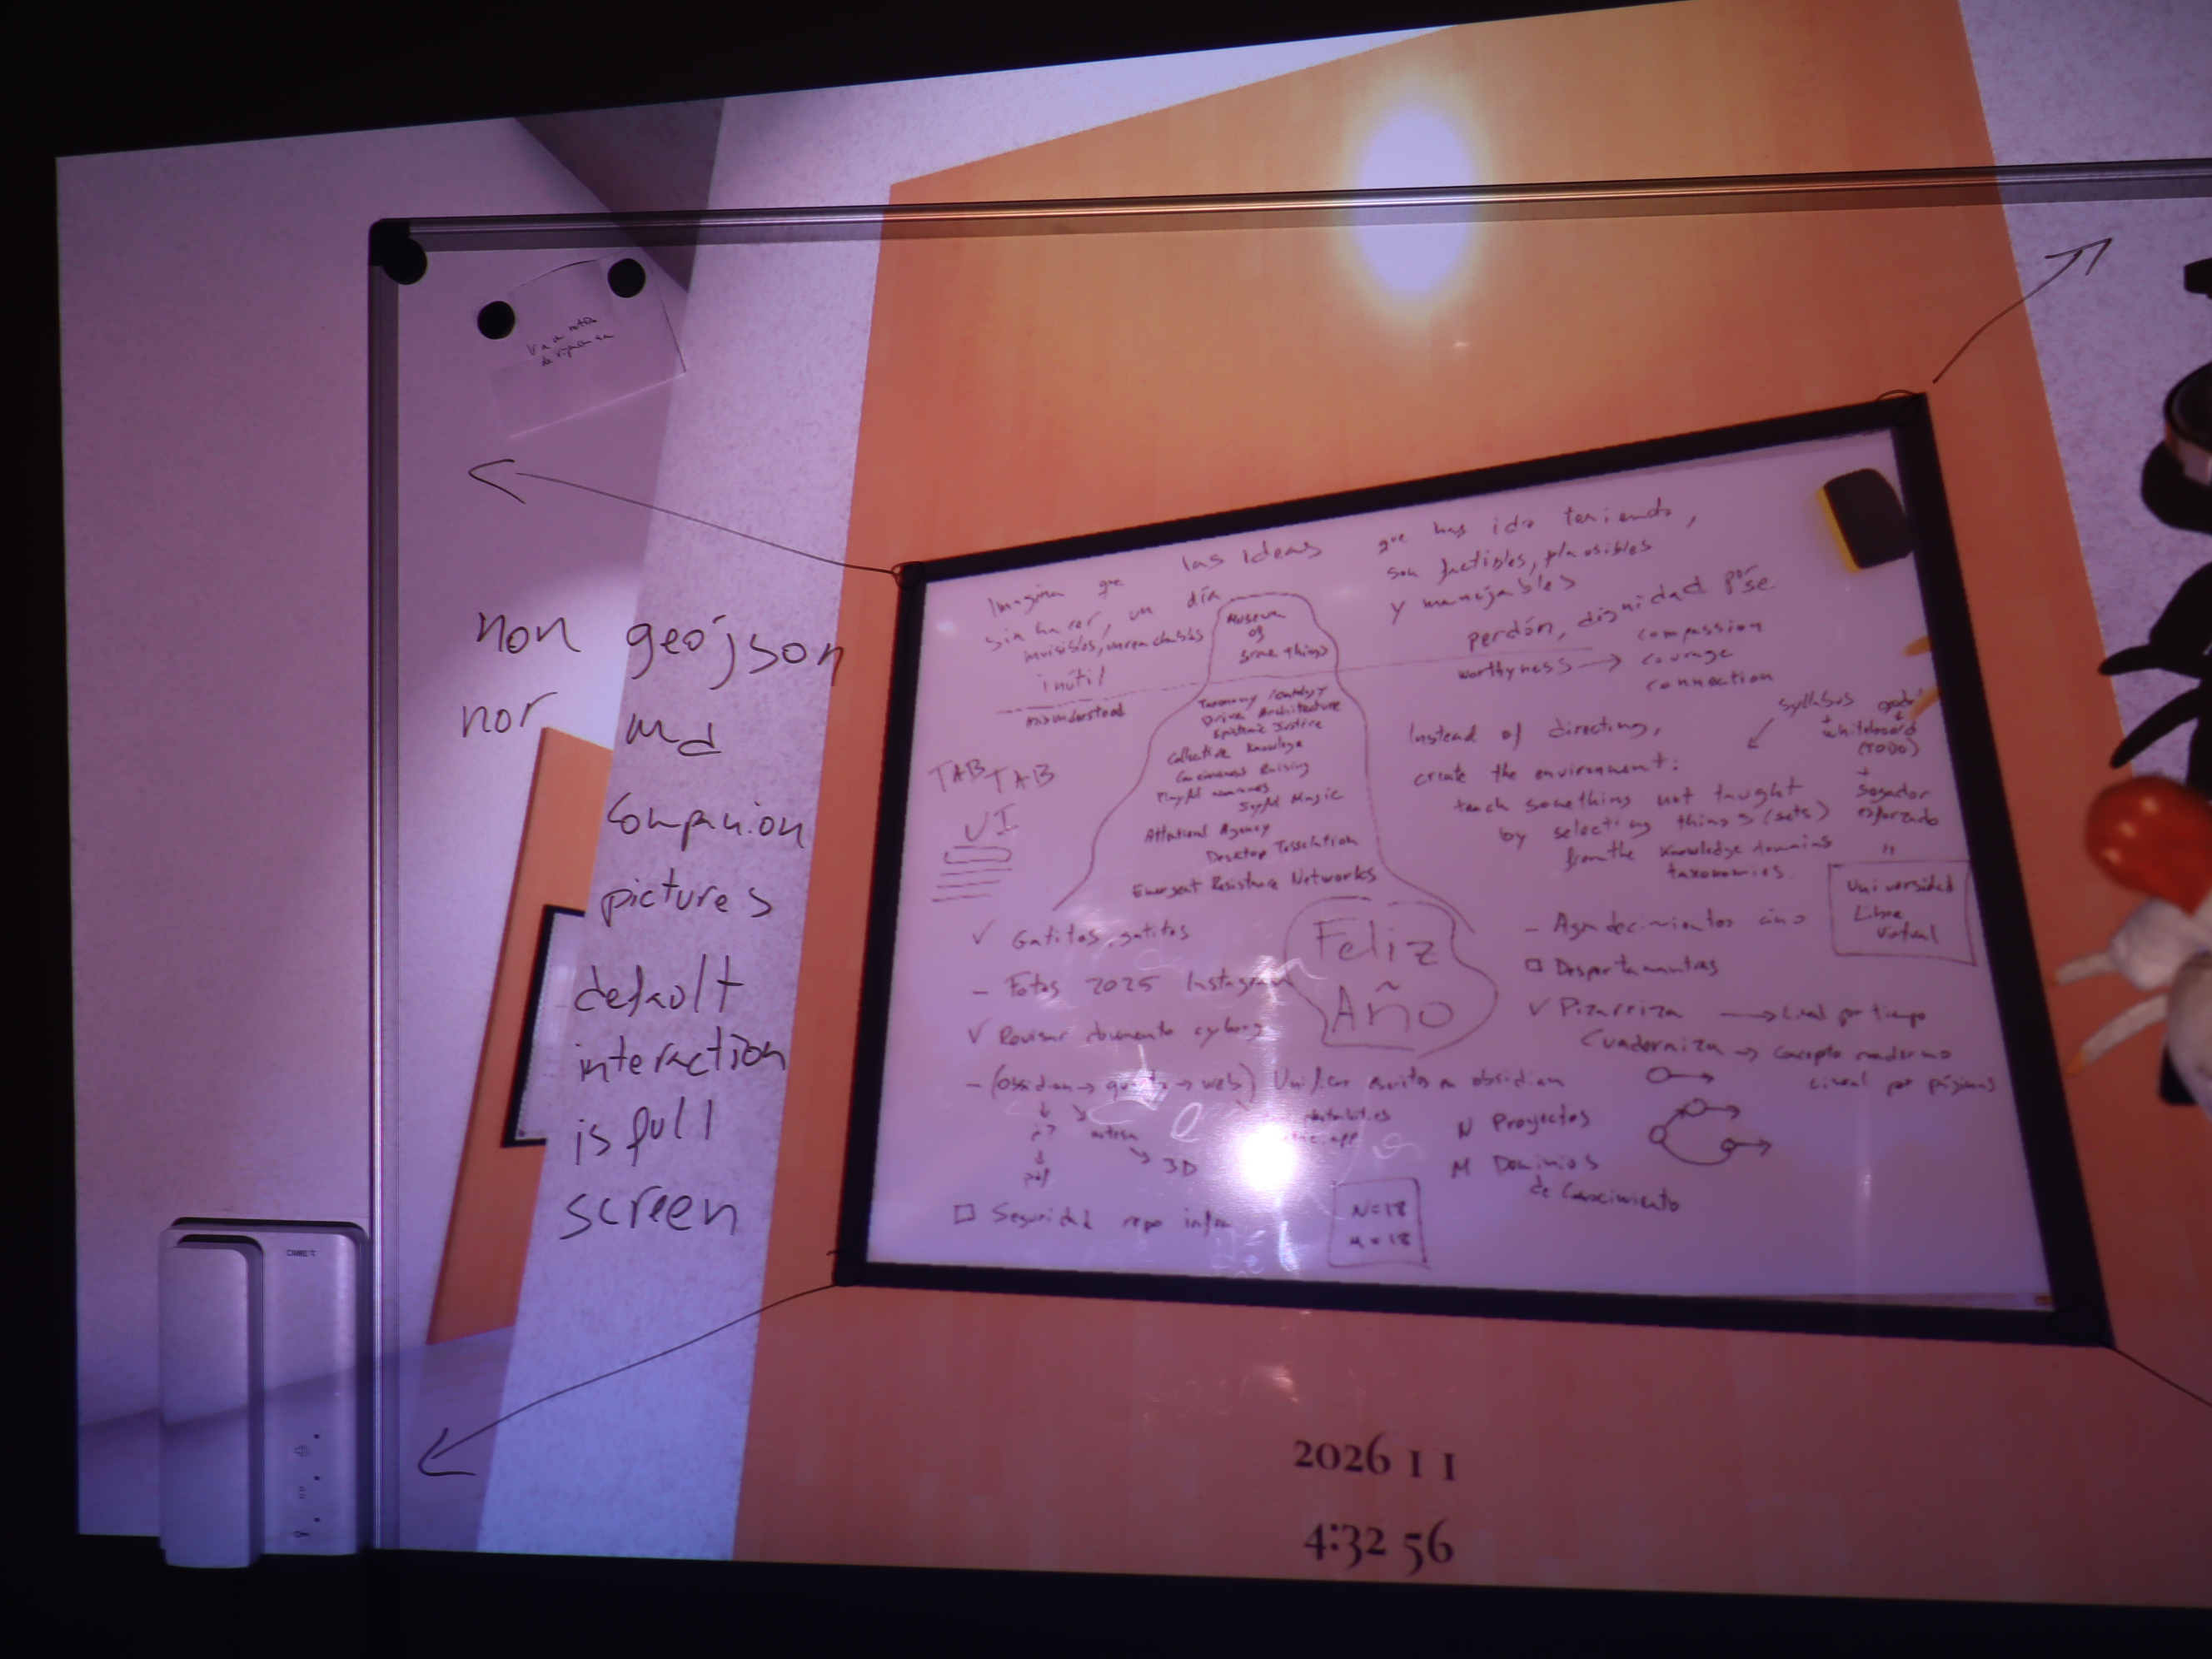 non geojson
nor md
companion
pictures
default
interaction
is full
screen
Imagina que las ideas que has ido teniendo,
sin hacer, un día son factibles, plausibles
y manejables
invisibles, unreachables
inútil
misunderstood
Museum
of
some things
perdón, dignidad per se.
worthyness → compassion
courage
connection
Taxonomy / Ontology
Driven Architecture
Epistemic Justice
Collective Knowledge
Raising
Joyful Magic
Agency
Desktop Tessellation
Emergent Resistance Networks
TAB TAB
UI
Instead of directing,
create the environment:
teach something not taught
by selecting things (sets)
from the knowledge domains
taxonomies.
syllabus
+
whiteboard
(TODO)
+
esforzado
Universidad
Libre
Virtual
✓ Gatitos, gatitos
- Fotos 2025 Instagram
✓ Revisar documento cyborg
- (Obsidian → → web) Unificar escritos en obsidian
pdf
3D
□ Seguridad repo infra
Feliz
Año
- Agradecimientos año
□
✓ Pizarriza → Lineal por tiempo
Cuaderniza → concepto cuaderno
Lineal por páginas
N Proyectos
M Dominios
de Conocimiento
N=18
M=18
2026 1 1
4:32 56